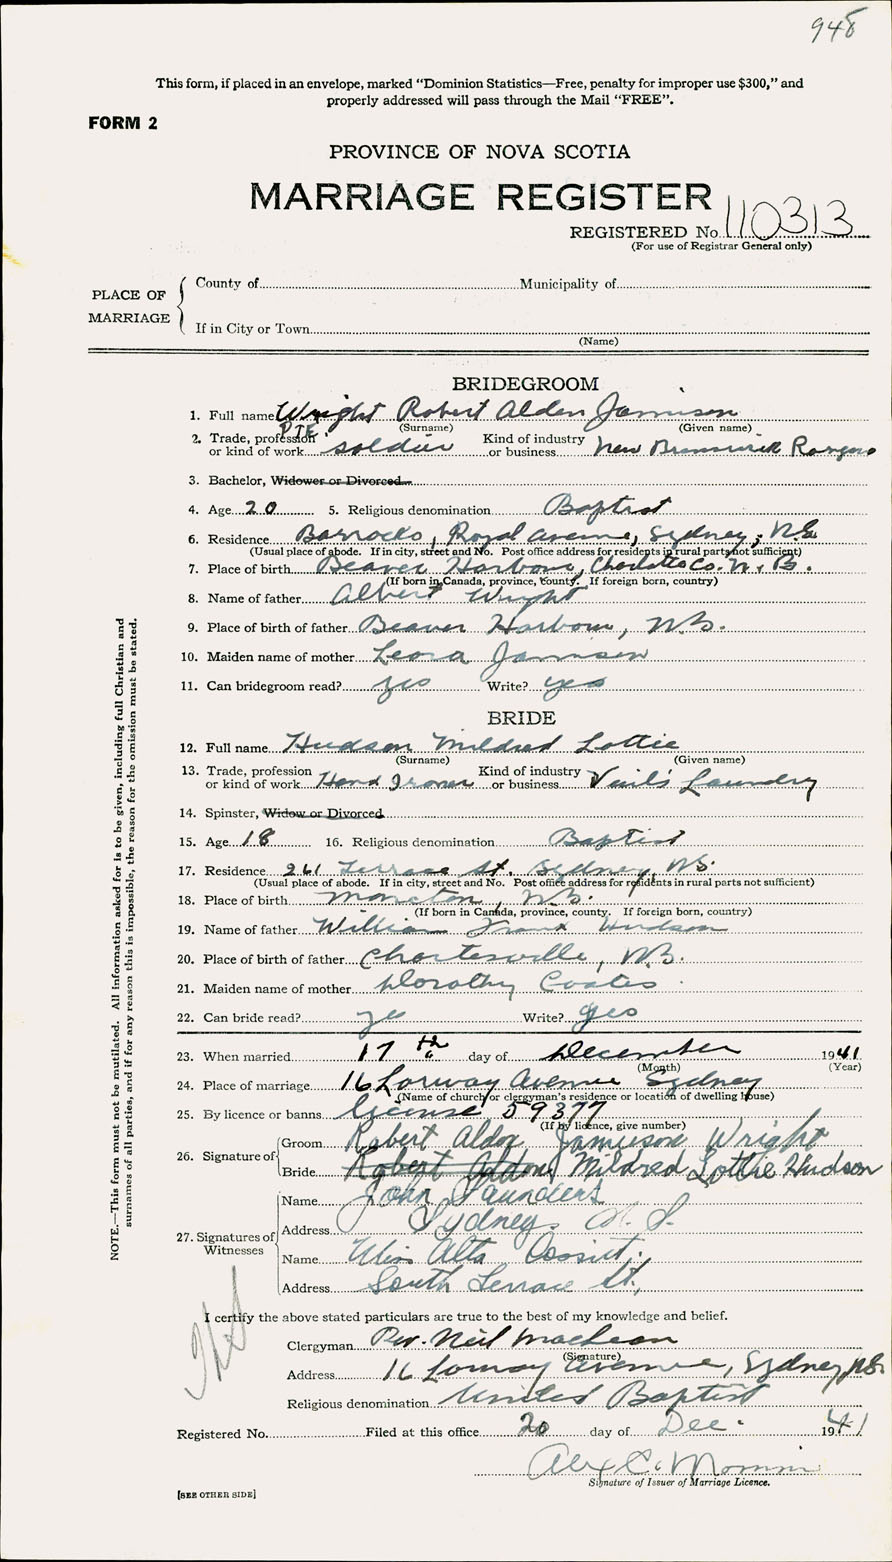 948
This form, if placed in an envelope, marked “Dominion Statistics—Free, penalty for improper use $300,” and
properly addressed will pass through the Mail “FREE”.
FORM 2
PROVINCE OF NOVA SCOTIA
MARRIAGE REGISTER
REGISTERED No 110313
(For use of Registrar General only)
PLACE OF MARRIAGE
County of Municipality of
If in City or Town
(Name)
BRIDEGROOM
1. Full name Wright Robert Alden Jamison
(Surname) (Given name)
PTE
2. Trade, profession or kind of work soldier Kind of industry or business New Brunswick Rangers
3. Bachelor, Widower or Divorced
4. Age 20 5. Religious denomination Baptist
6. Residence Barracks, Royal Avenue, Sydney, N.S.
(Usual place of abode. If in city, street and No. Post office address for residents in rural parts not sufficient)
7. Place of birth Beaver Harbour, Charlotte Co. N.B.
(If born in Canada, province, county. If foreign born, country)
8. Name of father Albert Wright
9. Place of birth of father Beaver Harbour, N.B.
10. Maiden name of mother Leora Jamison
11. Can bridegroom read? yes Write? yes
BRIDE
12. Full name Hudson Mildred Lottie
(Surname) (Given name)
13. Trade, profession or kind of work Hand Ironer Kind of industry or business Vail's Laundry
14. Spinster, Widow or Divorced
15. Age 18 16. Religious denomination Baptist
17. Residence 261 Terrace St. Sydney, NS.
(Usual place of abode. If in city, street and No. Post office address for residents in rural parts not sufficient)
18. Place of birth Moncton, N.B.
(If born in Canada, province, county. If foreign born, country)
19. Name of father William Frank Hudson
20. Place of birth of father Chartersville, N.B.
21. Maiden name of mother Dorothy Coates
22. Can bride read? yes Write? yes
23. When married 17th day of December 1941
(Month) (Year)
24. Place of marriage 16 Lorway Avenue Sydney
(Name of church or clergyman's residence or location of dwelling house)
25. By licence or banns License 59377
(If by licence, give number)
26. Signature of Groom Robert Alden Jamieson Wright
Bride Robert Alden Mildred Lottie Hudson
27. Signatures of Witnesses
Name John Saunders
Address Sydney N.S.
Name Miss Alta
Address South Terrace St,
I certify the above stated particulars are true to the best of my knowledge and belief.
Clergyman Rev. Neil MacLean
(Signature)
Address 16 Lorway Avenue, Sydney NS.
Religious denomination United Baptist
Registered No. Filed at this office 20 day of Dec. 1941
Signature of Issuer of Marriage Licence.
[SEE OTHER SIDE]
NOTE.—This form must not be mutilated. All information asked for is to be given, including full Christian and
surnames of all parties, and if for any reason this is impossible, the reason for the omission must be stated.